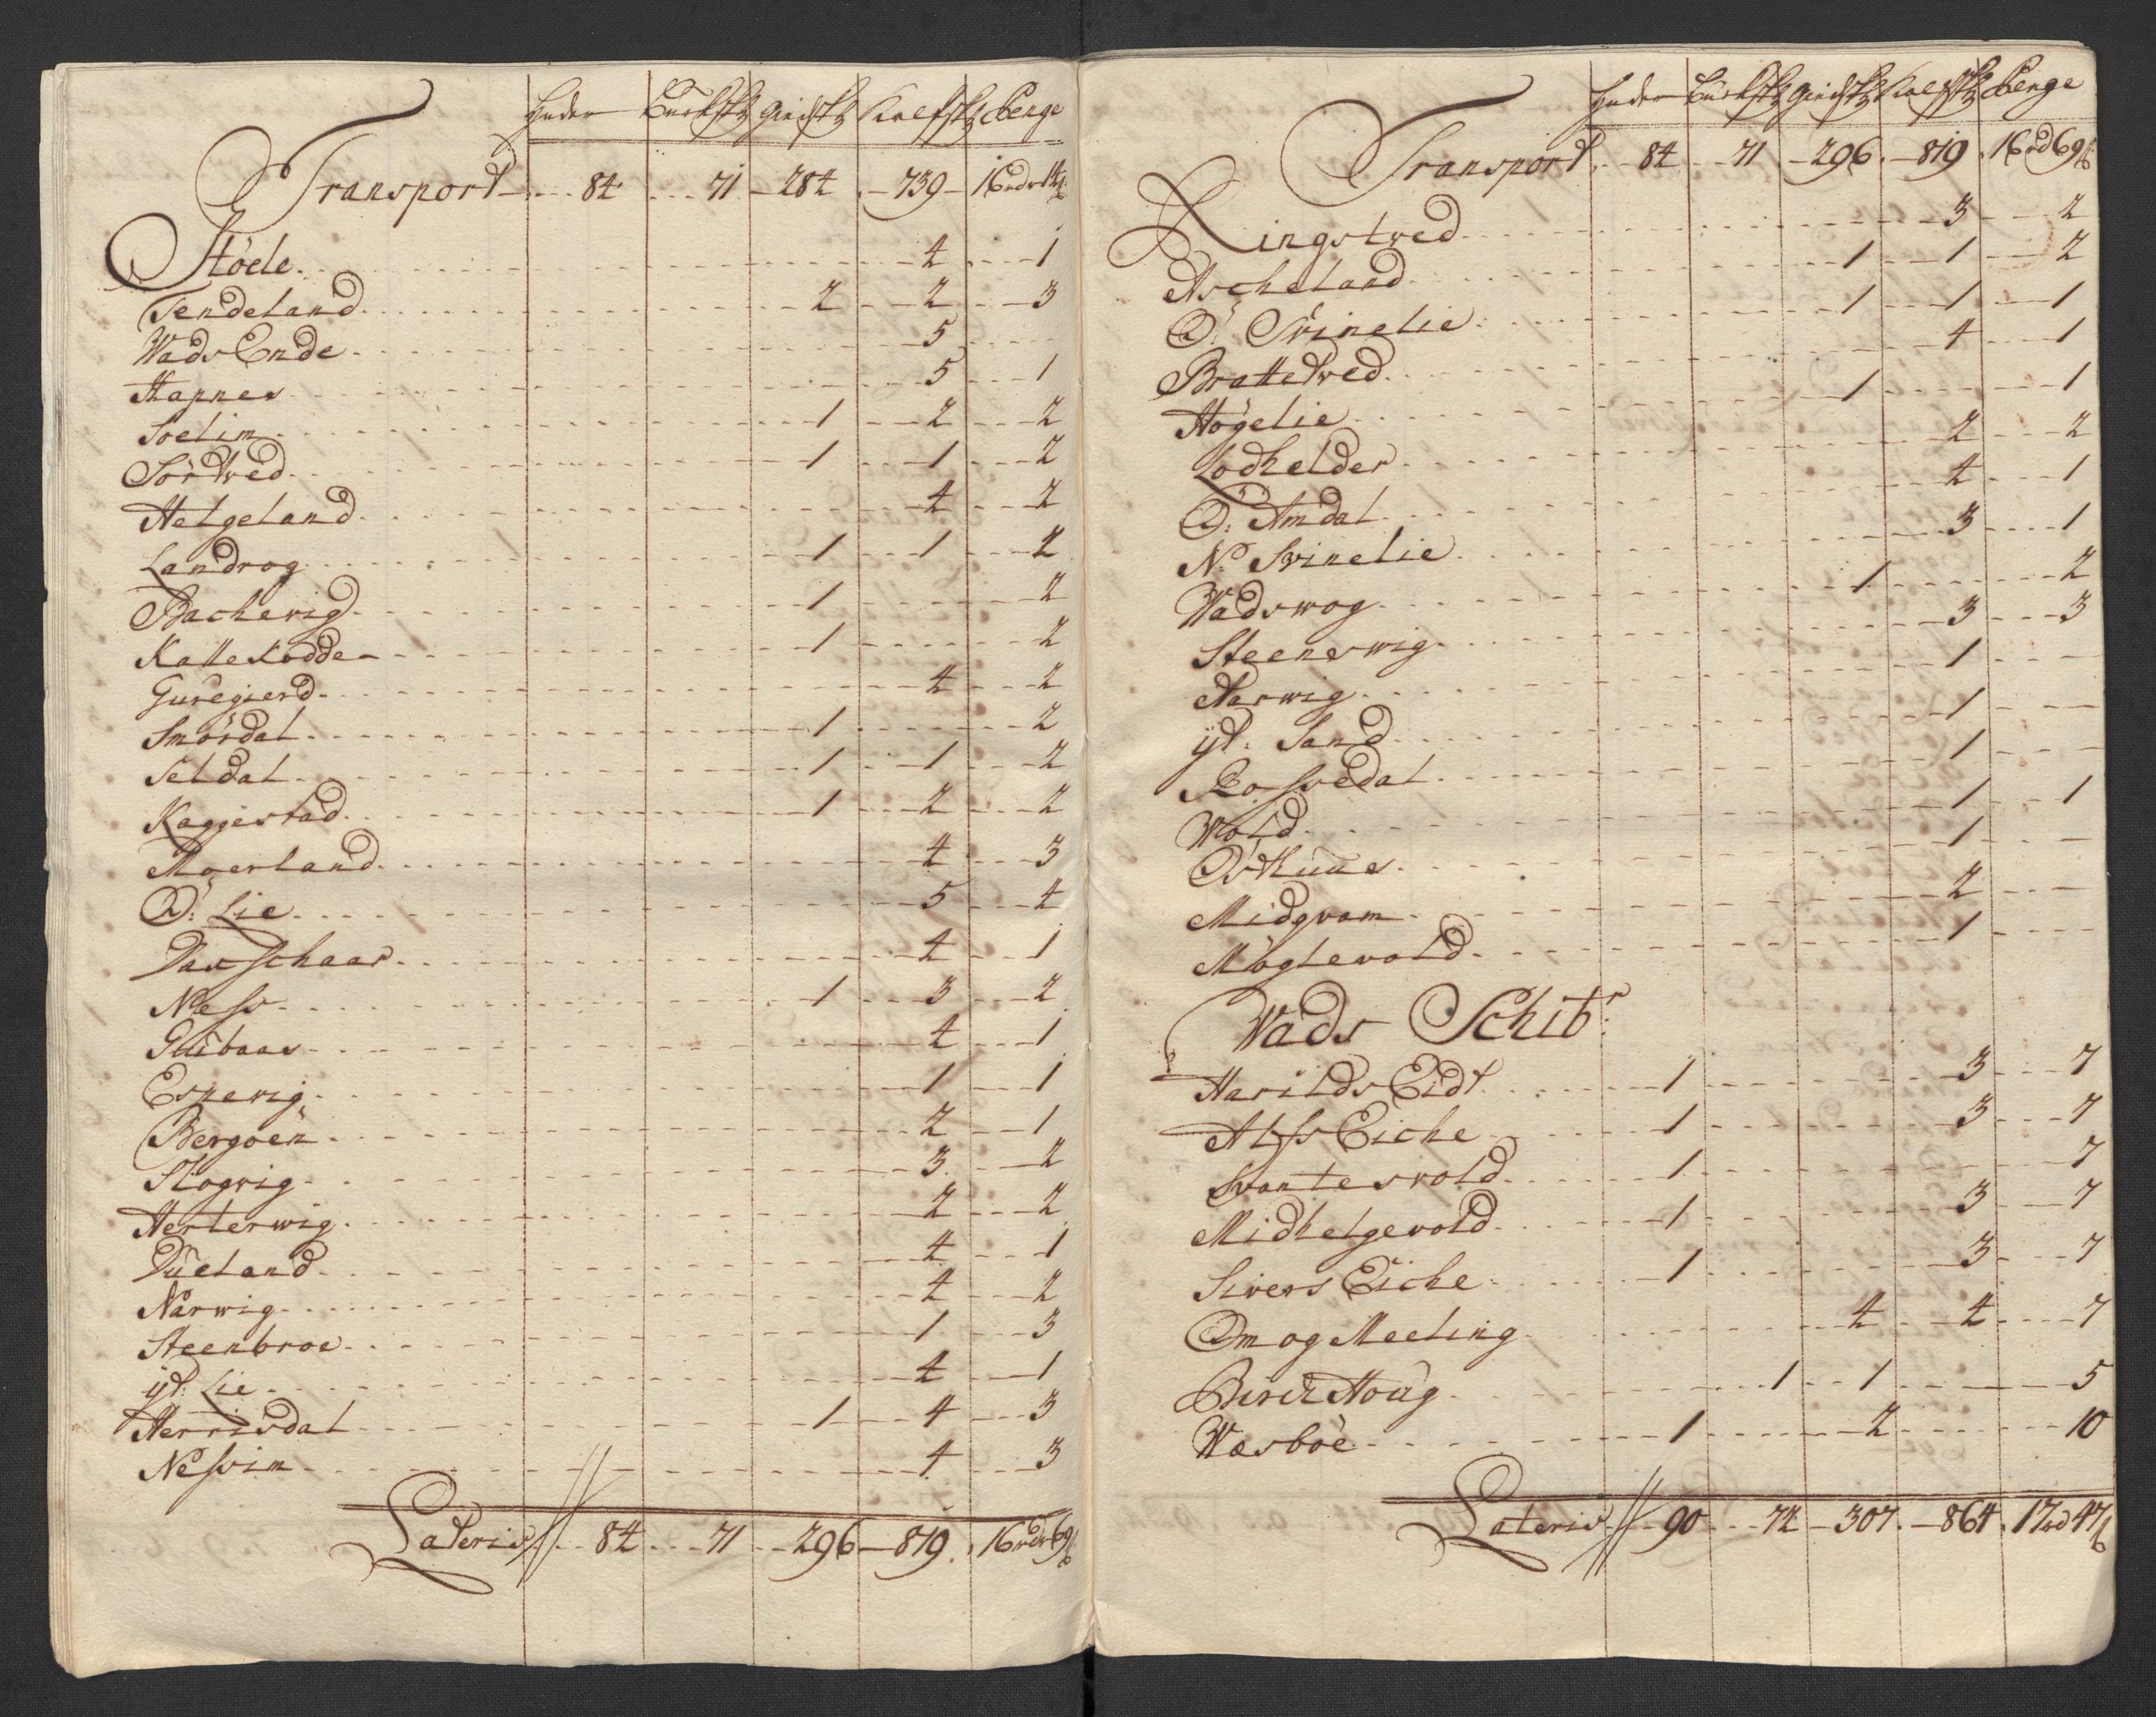 Huder Bucksk Giedsk Kalfsk Penge
Transpord 84 71 284 739 16 rdr 14 ß
Støele 4 1
Tendeland 2 2 3
Wads Ende 5
Hapnes 5 1
Soelim 1 2 2
Sørtved 1 1 2
Helgeland 4 2
Landrog 1 1 2
Bachevig 1 2
Kallekodde 1 2
Guregierd 4 2
Smørdal 1 2
Seldal 1 1 2
Kaggestad 1 2 2
Moerland 4 3
Ø: Lie 5 4
Daeschaar 4 1
Ness 1 3 2
Guibaas 4 1
Espevig 1 1
Bergøen 2 1
Skogvig 3 2
Herterwig 2 2
Dueland 4 1
Narwig 4 2
Steenbroe 1 3
yt: Lie 4 1
Herrisdal 1 4 3
Nessvim 4 3
Lateris 84 71 296 819 16 rdr 69 ß
Huder Bucksk Giedsk Kalfsk Penge
Transpord 84 71 296 819 16 rd 69 ß
Ringstved 3 2
Ascheland 1 1 2
Ø: Svinelie 1 1 1
Brattetved 4 1
Høgelie 1 1
Lodhelder 2 2
Ø: Amdal 4 1
N: Svinelie 3 1
Wadswog 1 2
Steenswig 3 3
Narwig 1
yt: Sand 1
Rossvedal 1
Wold 1 1
Østhuus 1
Midgvam 2
Møglevold 1
Wads Schibr:
Harilds Eidt 1 3 7
Alfs Eiche 1 3 7
Svantesvold 1 7
Midhelgevold 1 3 7
Sivers Eiche 1 3 7
Om og Meeling 4 4 7
Birck Houg 1 1 5
Wæsbøe 1 2 10
Lateris 90 72 307 864 17 rd 47 ß